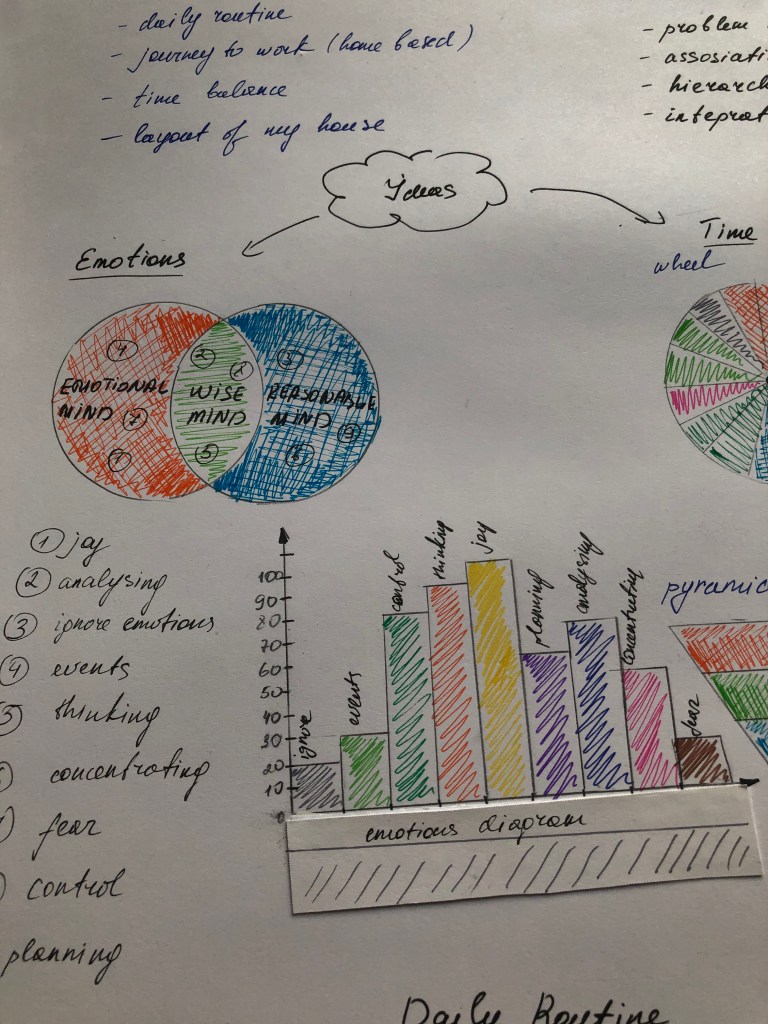 - daily routine
- journey to work (home based)
- time balance
- layout of my house
- problem
- assosiati
- hierarch
- integrat
Ideas
Emotions
Time
wheel
4
2
8
3
EMOTIONAL
MIND
7
WISE
MIND
REASONABLE
MIND
9
1
5
6
① joy
② analysing
③ ignore emotions
④ events
5 thinking
concentrating
fear
control
planning
100
90
80
70
60
50
40
30
20
10
0
ignore
events
control
thinking
joy
planning
analysing
concentrating
fear
emotions diagram
pyramid
Daily Routine